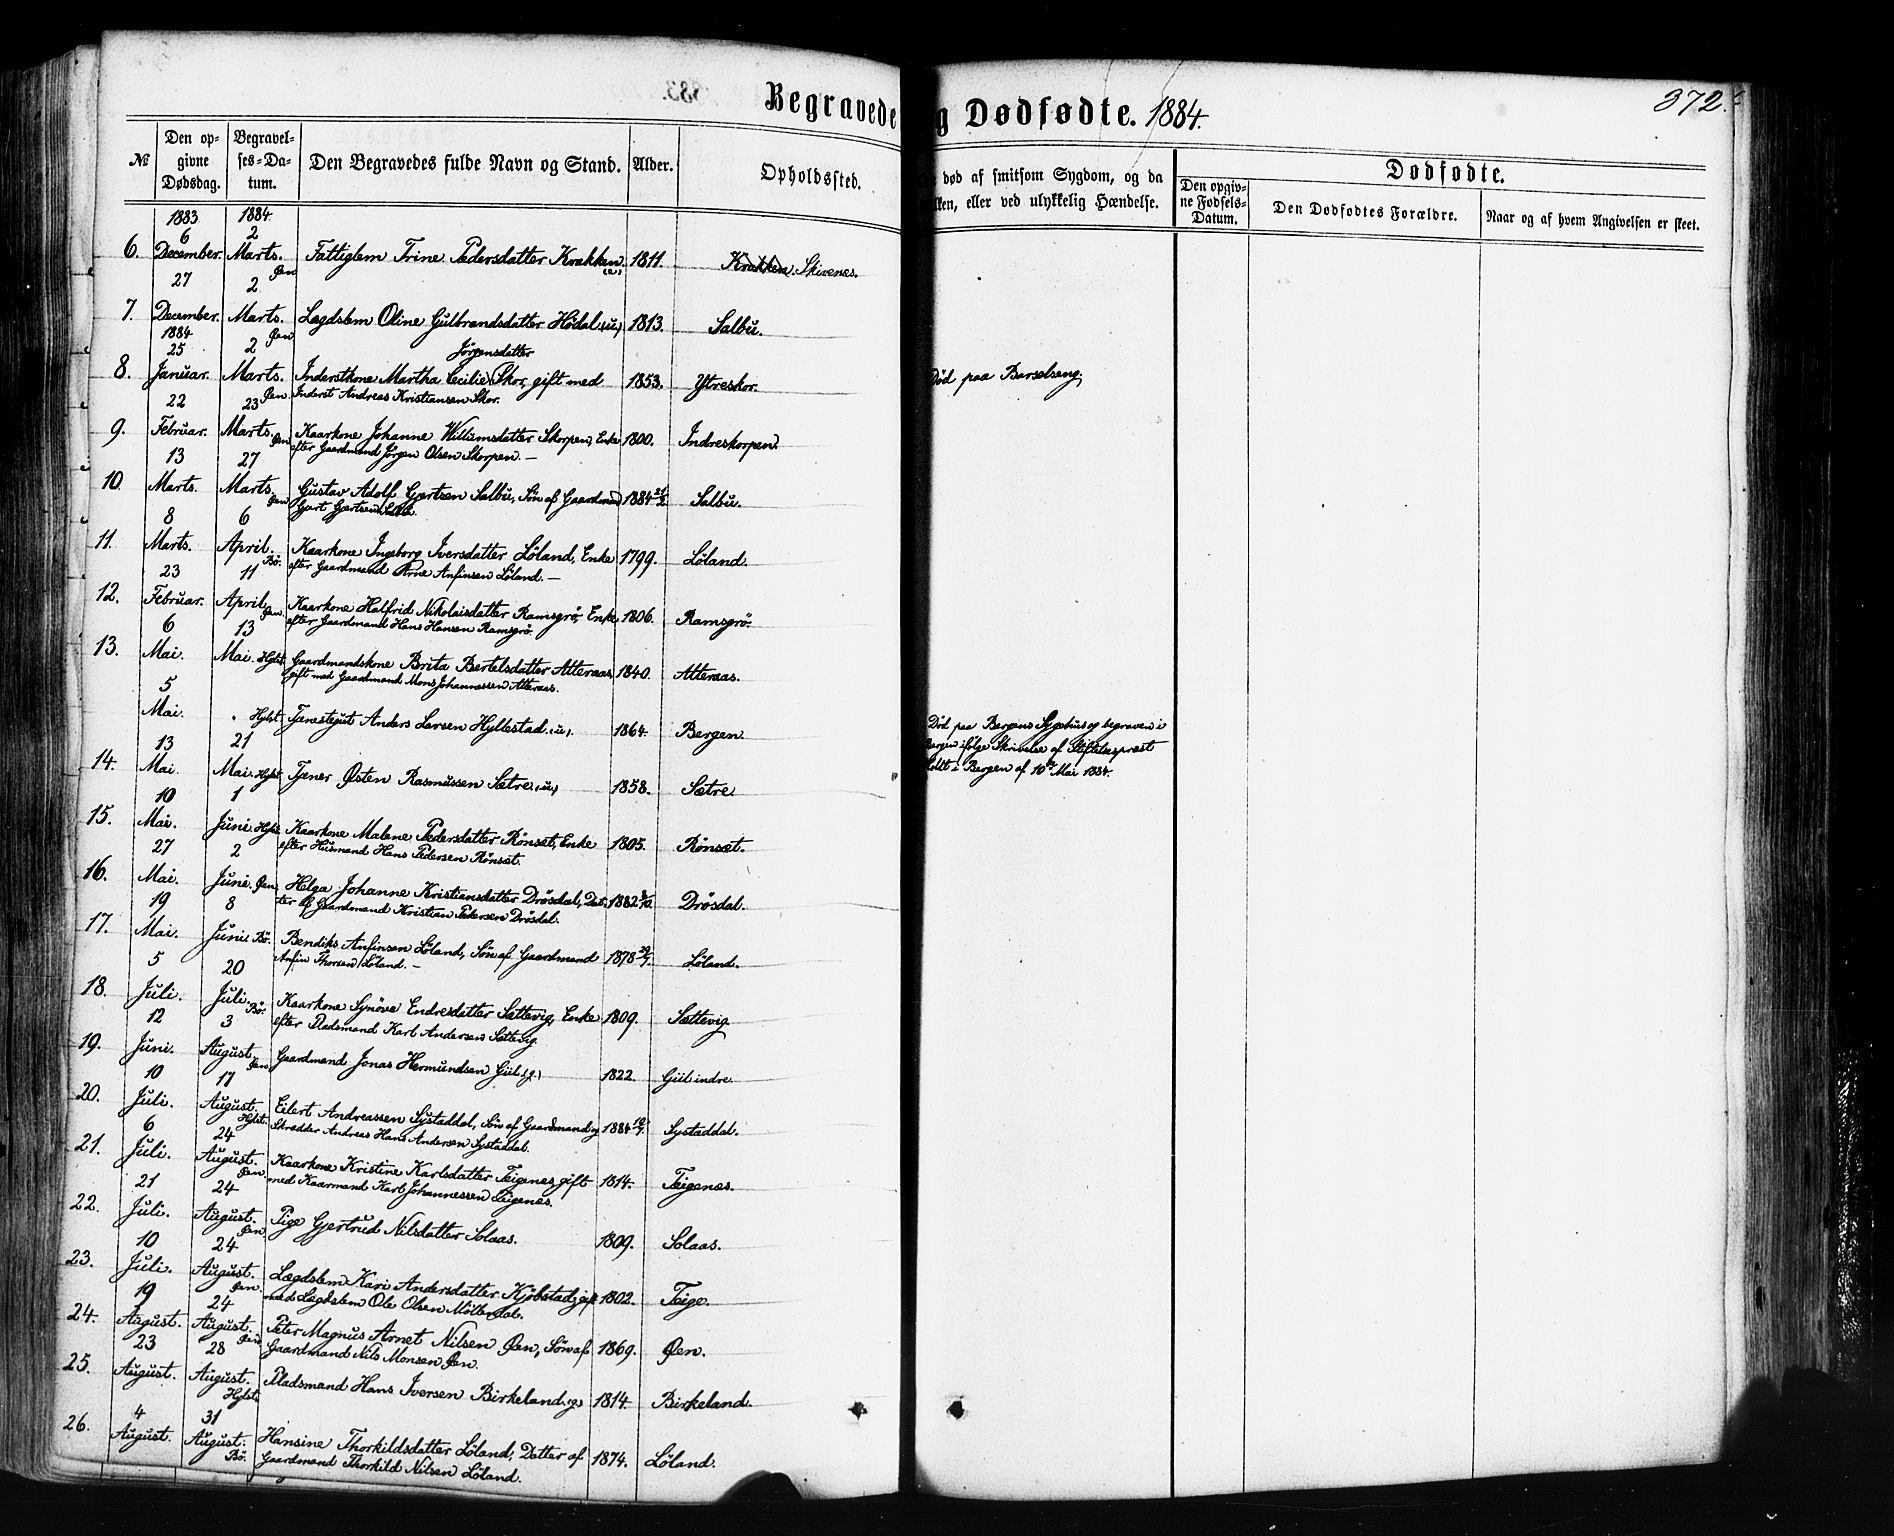 Begravede
g Dødfødte. 1884.
372.
№
Den opgivne Dødsdag.
Begravelses-Datum.
Den Begravedes fulde Navn og Stand.
Alder.
Opholdssted.
død af smitsom Sygdom, og da
lken, eller ved ulykkelig Hændelse.
Dødfødte.
Den opgivne Fødsels-Datum.
Den Dødfødtes Forældre.
Naar og af hvem Angivelsen er skeet.
1883 1884
6 2
6. December. Marts. Fattiglem Trine Pedersdatter Krakken 1811. Krakken Skivenes.
Øen
27 2
7. December. Marts. Lægdslem Oline Gulbrandsdatter Hødal (u) 1813. Salbu.
1884 Øen
25 2 Jørgensdatter
8. Januar. Marts. Inderstkone Martha Cecilie Skor, gift med 1853. Ytreskor. Død paa Barselseng.
Øen Inderst Andreas Kristiansen Skor.
22 23
9. Februar. Marts. Kaarkone Johanne Willumsdatter Skorpen, Enke 1800. Indreskorpen.
Øen efter Gaardmand Jørgen Olsen Skorpen. —
13 27
10. Marts. Marts. Gustav Adolf Gjertsen Salbu, Søn af Gaardmand 1884 Salbu.
Øen Gjert Gjertsen
8 6
11. Marts. April. Kaarkone Ingeborg Iversdatter Løland, Enke 1799. Løland.
Bø. efter Gaardmand Arne Anfinsen Løland. —
23 11
12. Februar. April. Kaarkone Halfrid Nikolaisdatter Ramsgrø, Enke 1806. Ramsgrø.
Øen. efter Gaardmand Hans Hansen Ramsgrø.
6 13
13. Mai. Mai. Hylst. Gaardmandskone Brita Bertelsdatter Atteraas 1840. Atteraas.
gift med Gaardmand Mons Johannessen Atteraas.
5
Mai. " Hylst. Tjenestegut Anders Larsen Hyllestad. (u). 1864. Bergen.
Død paa Bergens Sygehus og begraven i
Bergen ifølge Skrivelse af Stiftelsespræst
i Bergen af 10de Mai 1884.
13 21
14. Mai. Mai. Hylst. Tjener Østen Rasmussen Sætre. (u) 1858. Sætre.
10 1
15. Mai. Juni. Hylst. Kaarkone Malene Pedersdatter Rønset, Enke 1805. Rønset.
efter Husmand Hans Pedersen Rønset.
27 2
16. Mai. Juni. Øen. Helga Johanne Kristiansdatter Drøsdal, Dat- 1882 Drøsdal.
ter af Gaardmand Kristian Pedersen Drøsdal.
19 8
17. Mai. Juni. Bø. Bendiks Anfinsen Løland, Søn af Gaardmand 1878 Løland.
Anfin Thorsen Løland. —
5 20
18. Juli. Juli. Kaarkone Synøve Endresdatter Sættevig, Enke 1809. Sættevig
Bø. efter Pladsmand Karl Andersen Sættevig.
12 3
19. Juni. August. Gaardmand Jonas Hermundsen Gül (g.) 1822. Gül indre.
Øen
10 17
20. Juli. August. Eilert Andreassen Systaddal, Søn af Gaardmand og 1884 Systaddal.
Hylst. Skrædder Andreas Hans Andersen Systaddal.
6 24
21. Juli. August. Kaarkone Kristine Karlsdatter Teigenes, gift 1814. Teigenes.
Øen med Kaarmand Karl Johannessen Teigenes.
21 24
22. Juli. August. Pige Gjertrud Nilsdatter Solaas. 1809. Solaas.
Øen
10 24
23. Juli. August. Lægdslem Kari Andersdatter Kjøbstad, gift 1802. Teige.
Øen. med Lægdslem Ole Olsen
19 24
24. August. August. Peter Magnus Arnet Nilsen Øen, Søn af 1869. Øen.
Øen Gaardmand Nils Monsen Øen.
23 28
25. August. August. Pladsmand Hans Iversen Birkeland. (g) 1814. Birkeland.
Hylst.
4 31
26. August. August. Hansine Thorkildsdatter Løland, Datter af 1874. Løland.
Bø. Gaardmand Thorkild Nilsen Løland.